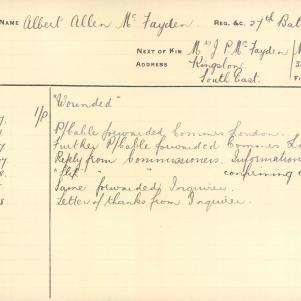 NAME Albert Allen Mc Fayden. REG. &C. 27th Bat
NEXT OF KIN Mrs J P Mc Fayden
ADDRESS Kingston
South East.
I/D "Wounded"
P/Cable forwarded Commrs London.
Further P/Cable forwarded Commrs Lo
Reply from Commissioners. Information
confirming
Same forwarded Inquirer.
Letter of thanks from Inquirer.